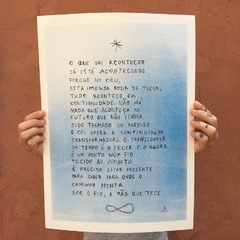 O QUE VAI ACONTECER
JÁ ESTÁ ACONTECENDO.
PORQUE NO CÉU,
ESTA IMENSA RODA DE TECER,
TUDO ACONTECE EM
CONTINUIDADE. NÃO HÁ
NADA QUE ACONTEÇA NO
FUTURO QUE NÃO TENHA
SIDO TRAMADO NO
O CÉU OPERA A CONTINUIDADE
TRANSFORMADORA. O TRANSCORRER
DO TEMPO É O TECER E O AGORA
É UM PONTO NUM FIO
TECIDO AO INFINITO.
É PRECISO ESTAR PRESENTE
PARA SABER PARA ONDE O
CAMINHO APONTA.
SER O FIO, A MÃO QUE TECE